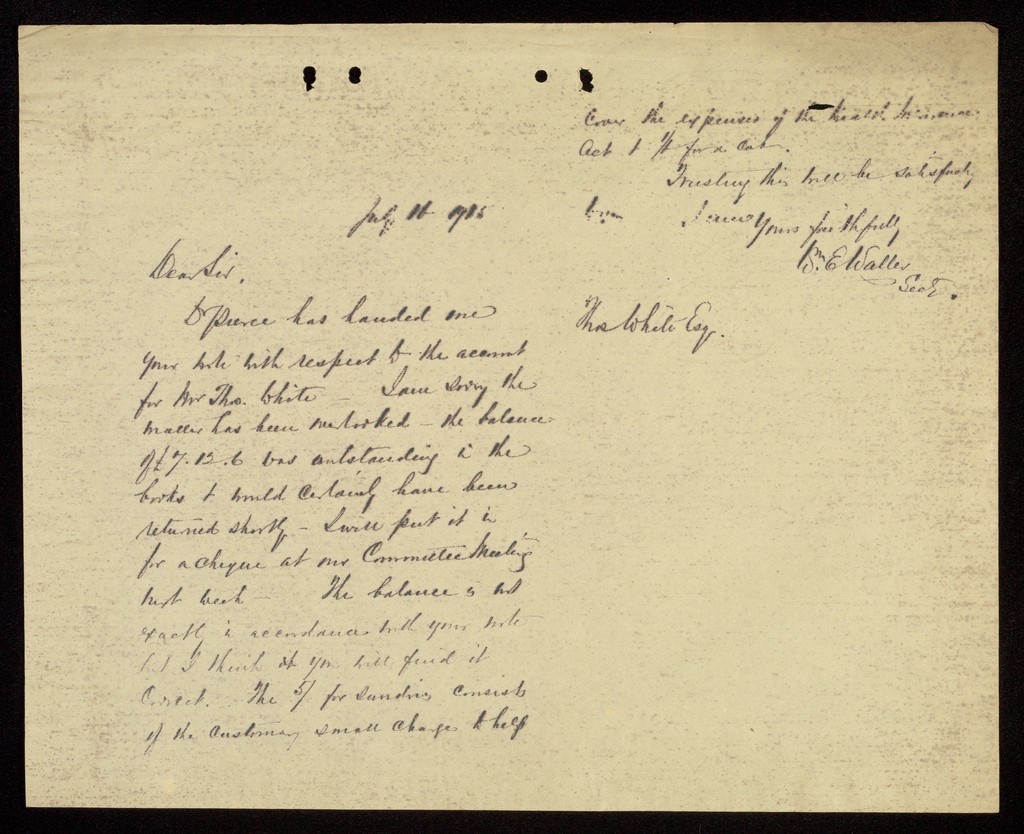 July 16 1915
Dear Sir,
Dr Pierce has handed me
your note with respect to the account
for Mr Thos. White — I am sorry the
matter has been overlooked — the balance
of £7.12.6 was outstanding in the
books & would certainly have been
returned shortly — I will put it in
for a cheque at our Committee Meeting
next week — The balance is not
exactly in accordance with your note
but I think you will find it
correct. The 5/ for sundries consists
of the customary small charge to help
cover the expenses of the Insurance
Act & 1/ for a Cab.
Trusting this will be satisfactory
I am
Yours faithfully
Wm E Waller
Secty.
Thos White Esq.